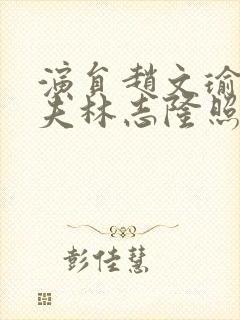 演員趙文瑜
夫林志隆照
彭佳慧